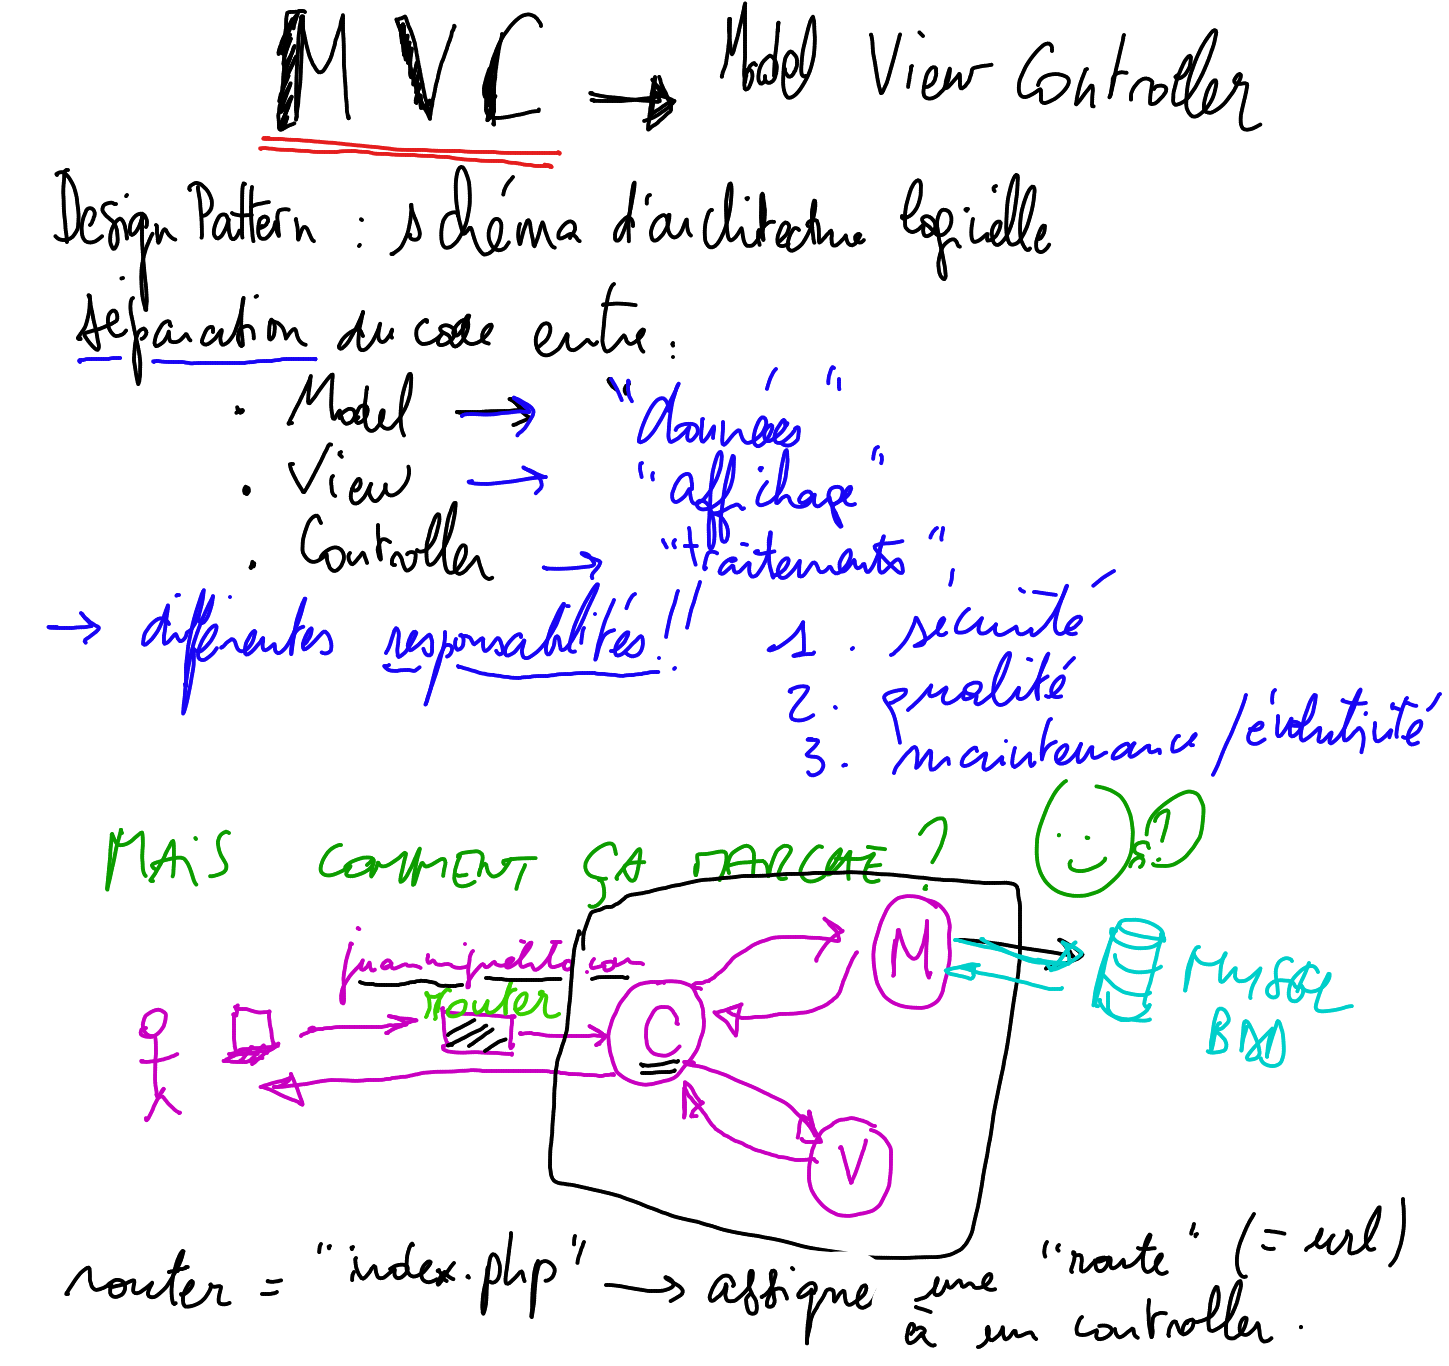 MVC → Model View Controller
Design Pattern : schéma d'architecture logicielle
séparation du code entre :
• Model → "données"
• View → "affichage"
• Controller → "traitements"
→ différentes responsabilités !!
1. sécurité
2. qualité
3. maintenance / évolutivité
MAIS COMMENT ÇA MARCHE ?
router
C
M
V
MySQL
BDD
router = "index.php" → assigne une "route" (= url)
à un controller.